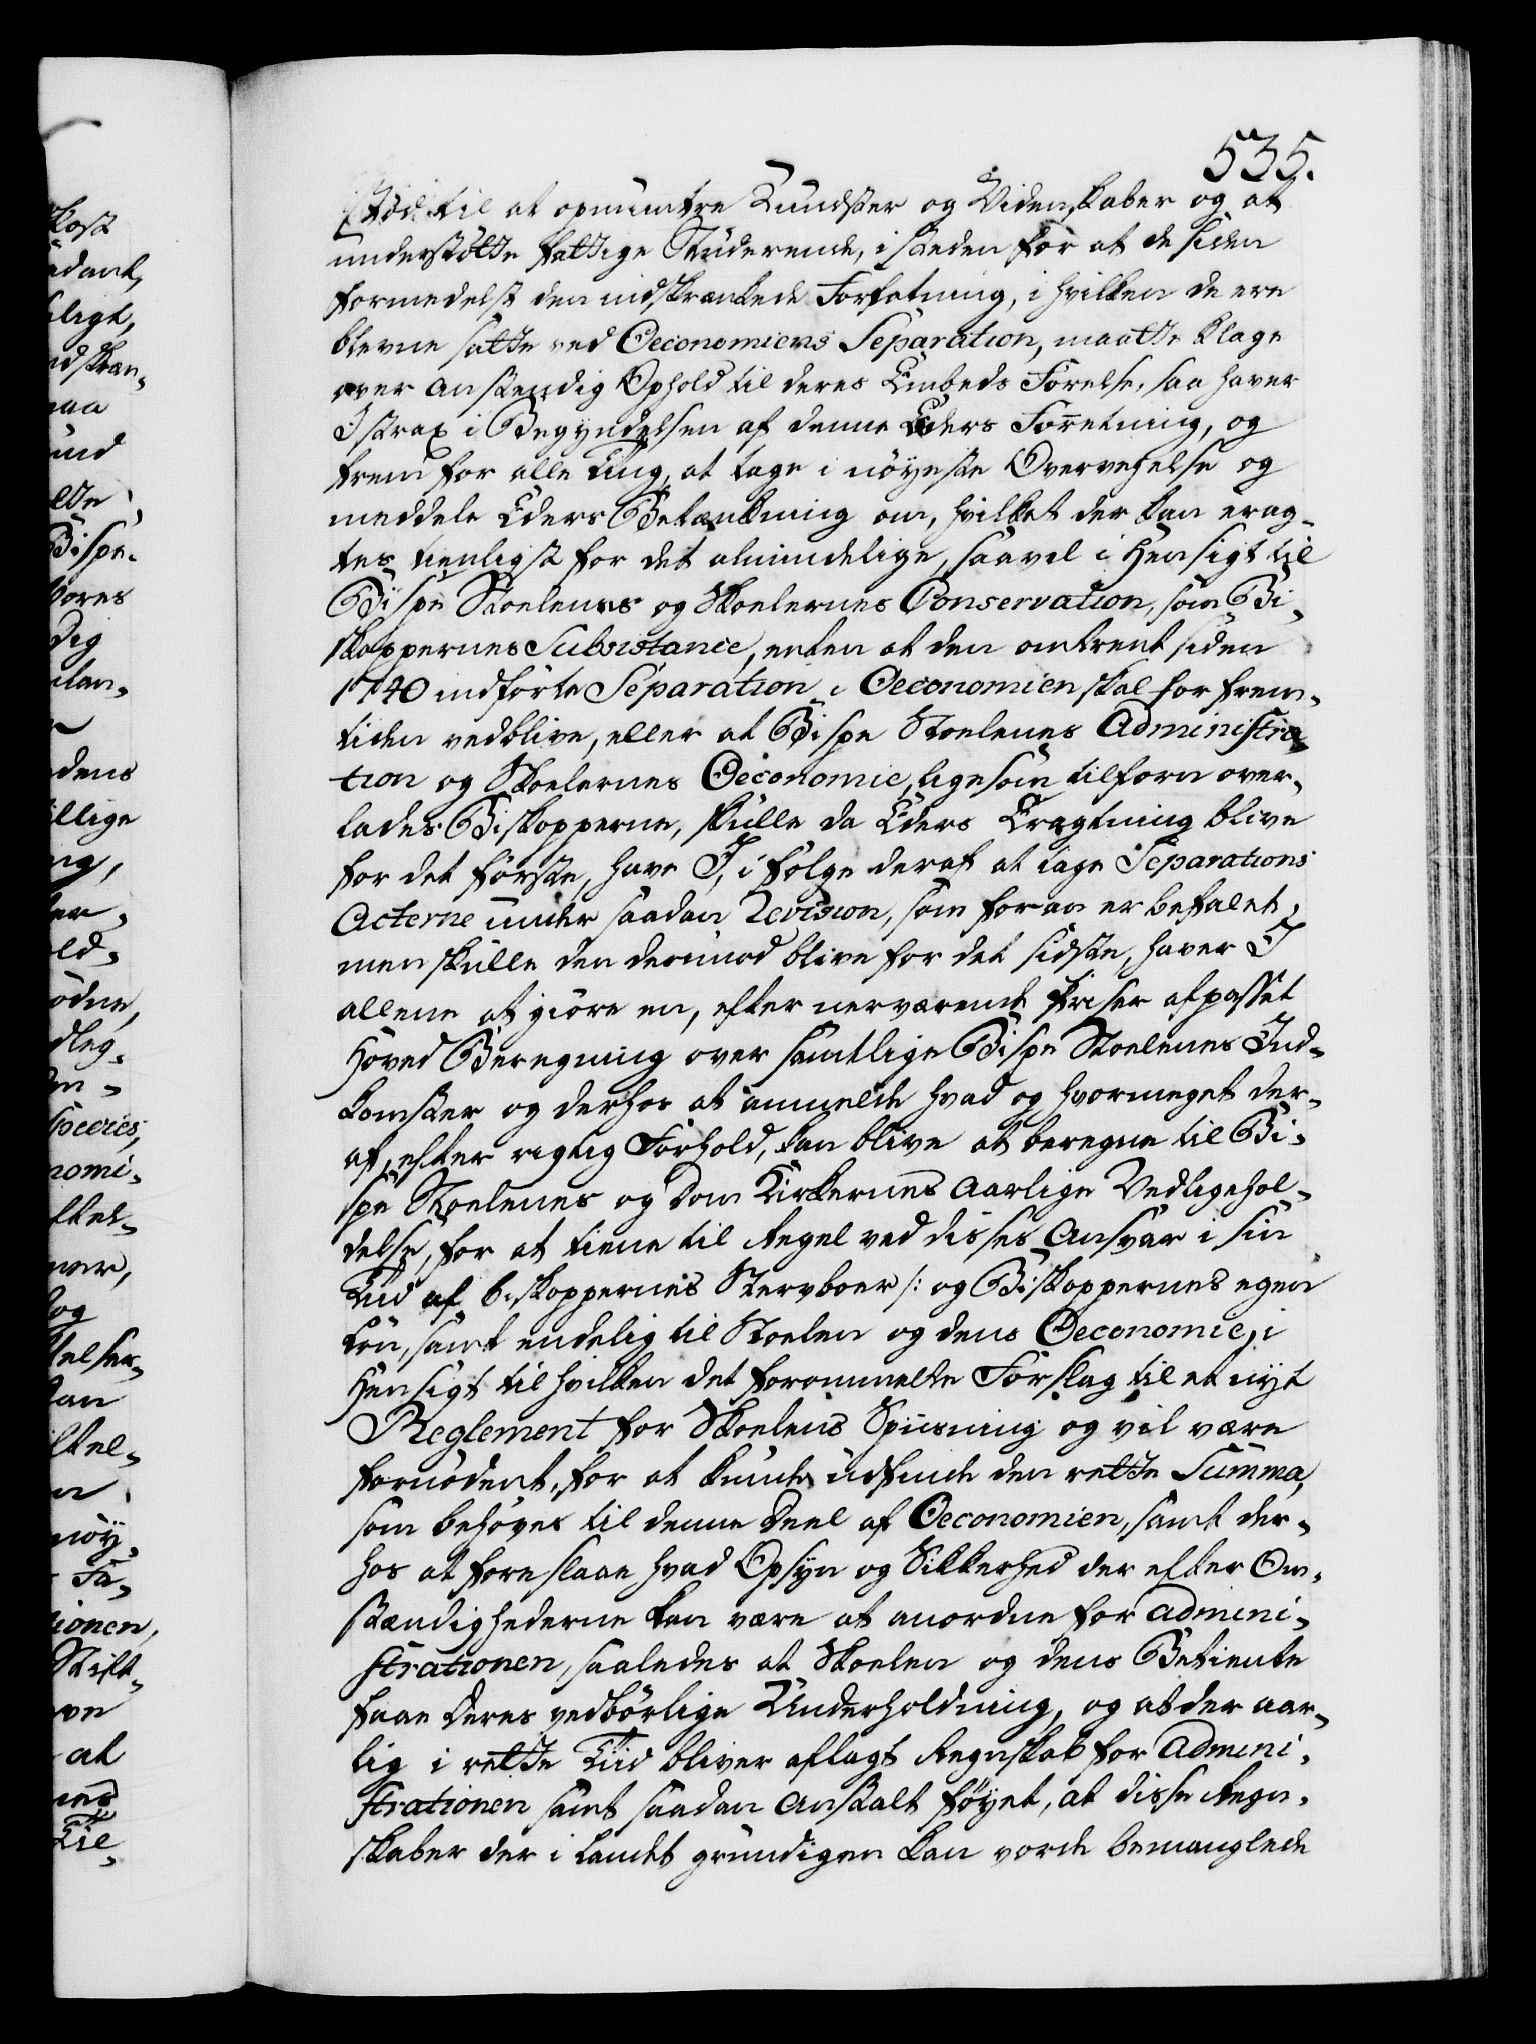 535.
stød til at opmuntre Kundster og Videnskaber og at
understøtte fattige Studerende, i steden for at de siden
formedelst den indskrænkede Forfatning, i hvilken de ere
blevne satte ved Oeconomiens Separation, maatte klage
over anstendig Ophold til deres Embeds Førelse, saa haver
I strax i Begyndelsen af denne Eders Forretning, og
frem for alle ting, at tage i nöyeste Overvejelse og
meddele Eders Betænkning om, hvilket der kan erag-
tes tienligst for det almindelige, saavel i Hensigt til
Bispe Stoelenes og Skoelernes Conservation, som Bi-
skoppernes Subsistance, enten at den omtrent siden
1740 indførte Separation i Oeconomien skal for frem-
tiden vedblive, eller at Bispe Stoelenes Administra-
tion og Skoelernes Oeconomie, ligesom tilforn over-
lades Biskopperne, skulle da Eders Eragtning blive
for det første, have I, i følge deraf at tage Separations
Acterne under saadan Revision, som foran er befalet,
men skulle den derimod blive for det sidste, haver I
allene at giöre en, efter nerværende Priser afpasset
Hoved Beregning over samtlige Bispe Stoelenes Ind-
komster og derhos at anmelde hvad og hvormeget der-
af, efter rigtig Forhold, kan blive at beregne til Bi-
spe Stoelenes og Dom Kirkernes aarlige Vedligehol-
delse, for at tiene til Regel ved disses Ansvar i sin
Tid af Biskoppernes Stervboer /: og Biskoppernes egen
Lön, samt endelig til Skoelen og dens Oeconomie, i
Hensigt til hvilken det forommelte Forslag til et nyt
Reglement for Skoelens Spiisning og vil være
fornödent, for at kunde udfinde den rette Summa,
som behøves til denne Deel af Oeconomien, samt der-
hos at foreslaae hvad Opsyn og Sikkerhed der efter Om-
stændighederne kan være at anordne for admini-
strationen, saaledes at Skoelen og dens Betiente
faae deres vedbörlige Underholdning, og at der aar-
lig i rette Tiid bliver aflagt Regnskab for Admini-
strationen samt saadan Anstalt föyet, at disse Regn-
skaber der i Landet grundigen kan vorde bemanglede